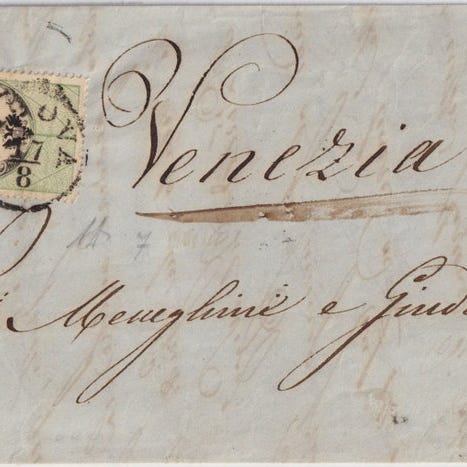 OVA
17
8
Venezia
7
Meneghini e Giud